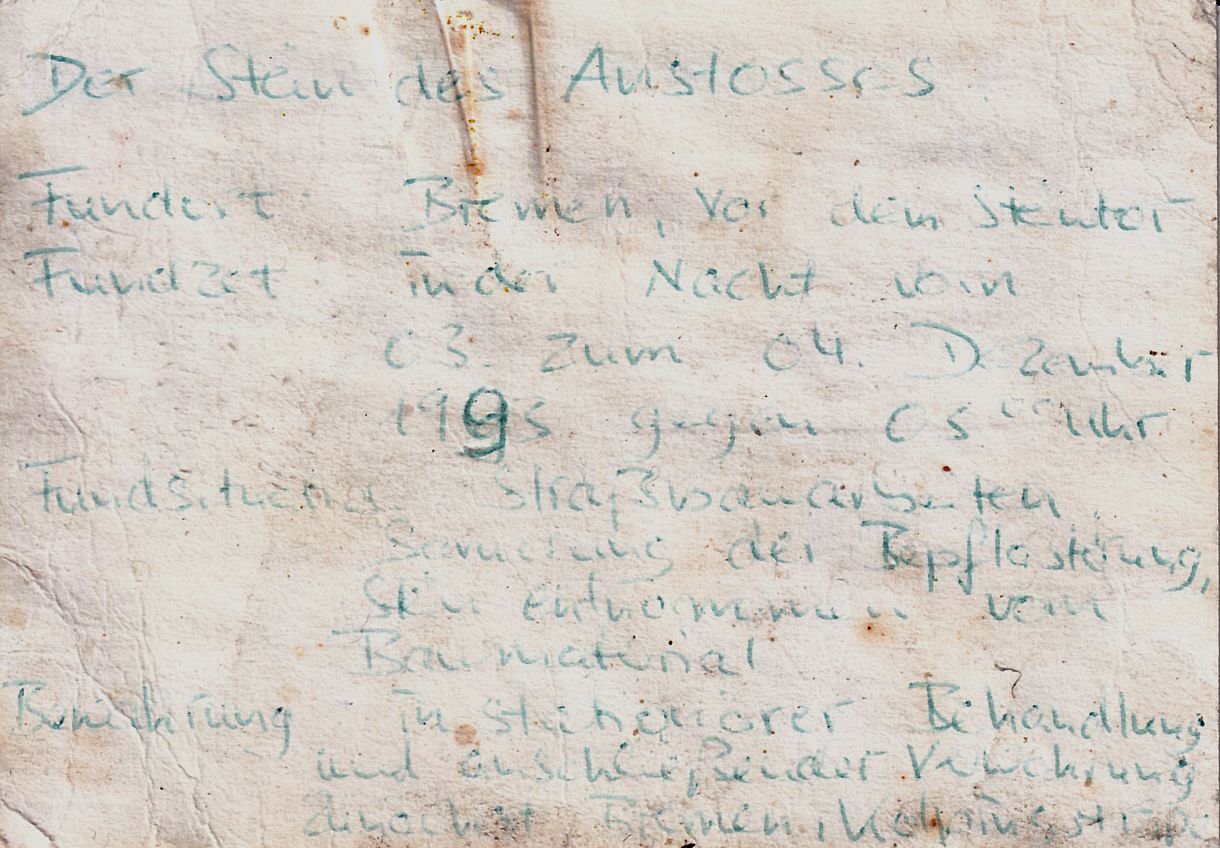 Der Stein des Anstosses
Fundort Bremen, vor dem Steintor
Fundzeit in der Nacht vom
03. zum 04. Dezember
1995 gegen 05 00 Uhr
Fundsituation Straßenbauarbeiten.
Sanierung der Bepflasterung,
Stein entnommen vom
Baumaterial
Bemerkung in stationärer Behandlung
und anschließender Verwahrung
Bremen, Kolpingstraße